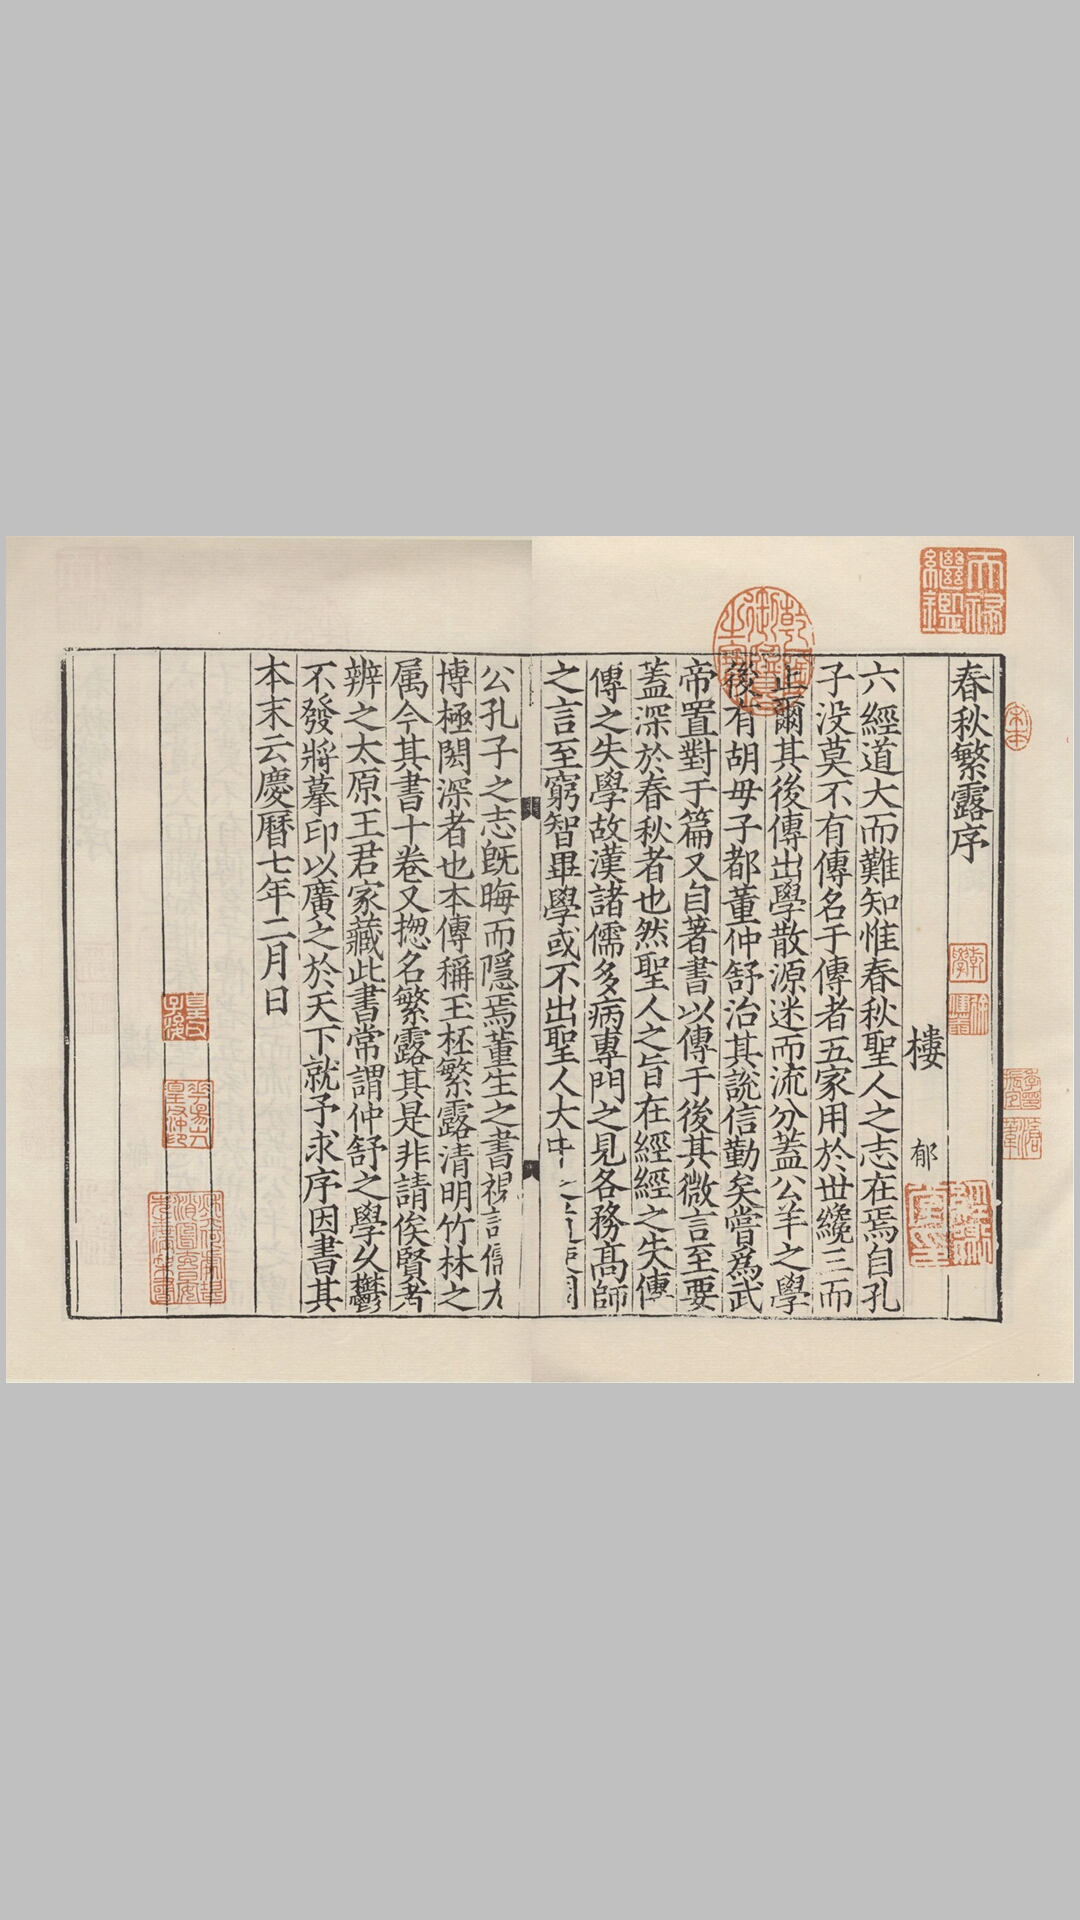 春秋繁露序
樓 郁
六經道大而難知惟春秋聖人之志在焉自孔
子没莫不有傳名于傳者五家用於世纔三而
止爾其後傳出學散源迷而流分蓋公羊之學
後有胡毋子都董仲舒治其說信勤矣嘗爲武
帝置對于篇又自著書以傳于後其微言至要
蓋深於春秋者也然聖人之旨在經經之失傳
傳之失學故漢諸儒多病專門之見各務高師
之言至窮智畢學或不出聖人大中之
公孔子之志旣晦而隱焉董生之書視諸儒尤
博極閎深者也本傳稱玉杯繁露清明竹林之
属今其書十卷又揔名繁露其是非請俟賢者
辨之太原王君家藏此書常謂仲舒之學久鬱
不發將摹印以廣之於天下就予求序因書其
本末云慶曆七年二月日
天祿
繼鑑
宋本